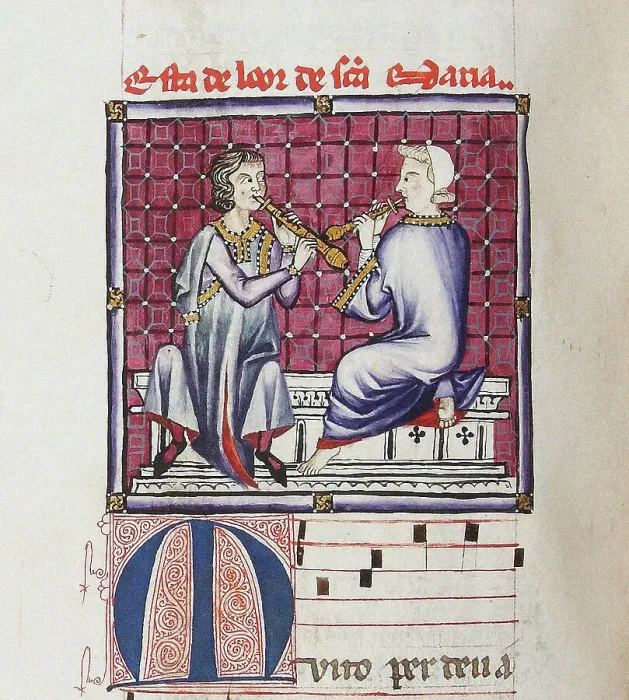 Esta de loor de sc̃a Maria..
Mvito per deu a